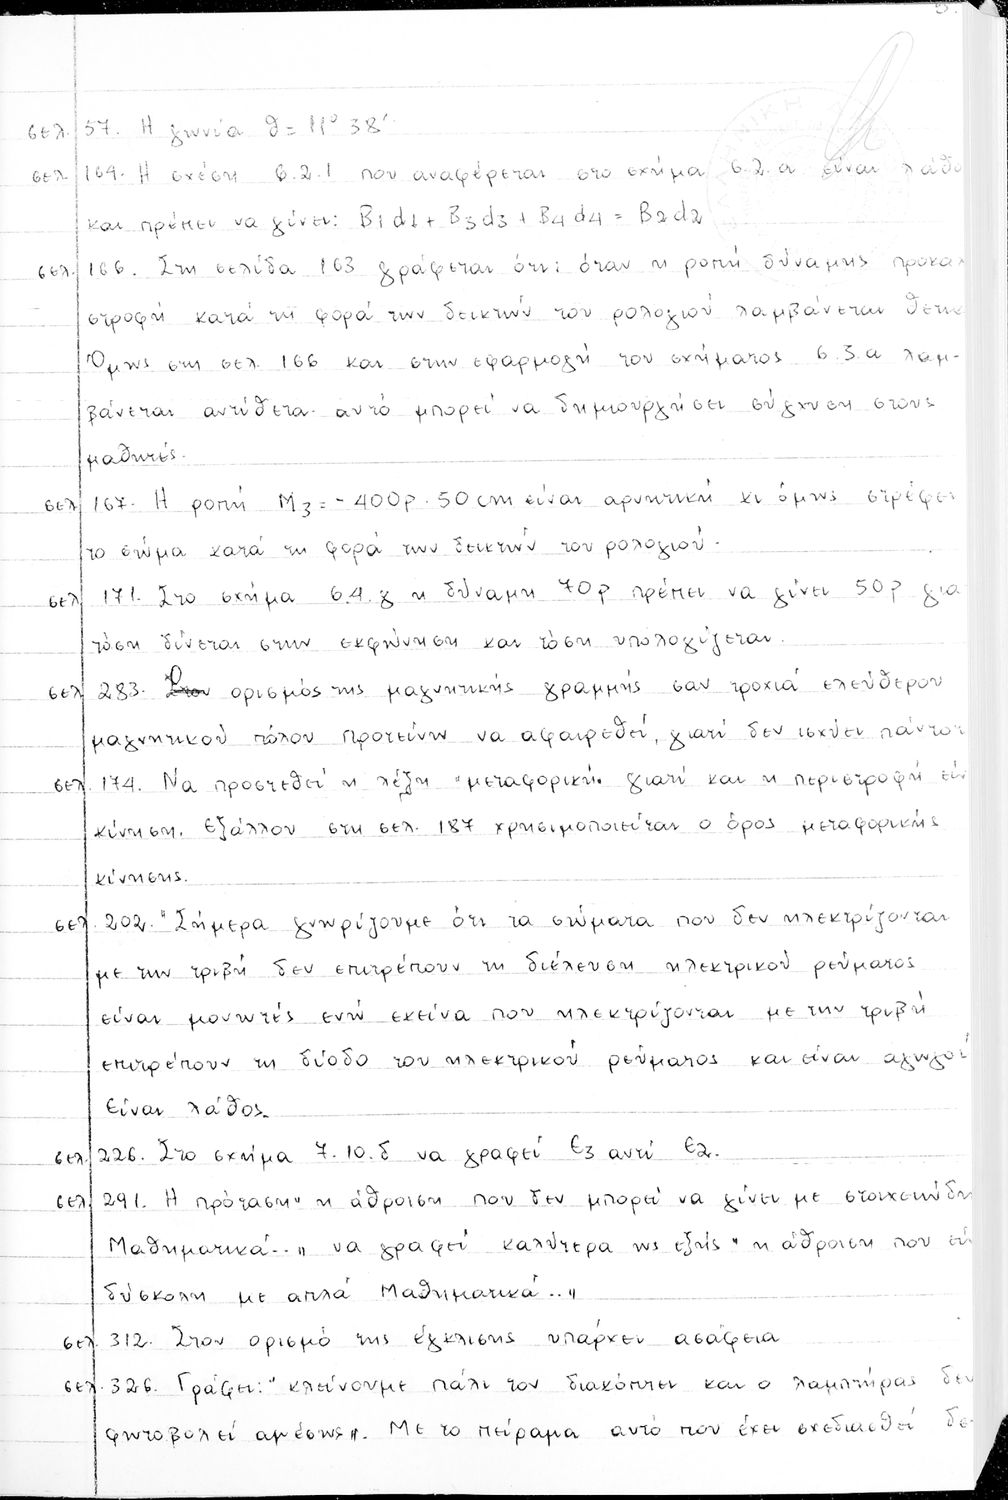 σελ. 57. Η γωνία θ = 11° 38'
σελ 164. Η σχέση 6.2.1 που αναφέρεται στο σχήμα 6.2.α είναι λάθο
και πρέπει να γίνει: B1d1 + B3d3 + B4d4 = B2d2
σελ. 166. Στη σελίδα 163 γράφεται ότι: όταν η ροπή δύναμης προκα
στροφή κατά τη φορά των δεικτών του ρολογιού λαμβάνεται θετικ
Όμως στη σελ. 166 και στην εφαρμογή του σχήματος 6.3.α λαμ-
βάνεται αντίθετα. αυτό μπορεί να δημιουργήσει σύγχυση στους
μαθητές.
σελ 167. Η ροπή M3 = -400p . 50cm είναι αρνητική κι όμως στρέφει
το σώμα κατά τη φορά των δεικτών του ρολογιού.
σελ 171. Στο σχήμα 6.4.γ η δύναμη 70p πρέπει να γίνει 50p για
τόση δίνεται στην εκφώνηση και τόση υπολογίζεται.
σελ 283. Ο ορισμός της μαγνητικής γραμμής σαν τροχιά ελεύθερου
μαγνητικού πόλου προτείνω να αφαιρεθεί, γιατί δεν ισχύει πάντοτ
σελ. 174. Να προστεθεί η λέξη "μεταφορική" γιατί και η περιστροφή είν
κίνηση. Εξάλλου στη σελ. 187 χρησιμοποιείται ο όρος μεταφορικής
κίνησης.
σελ 202. "Σήμερα γνωρίζουμε ότι τα σώματα που δεν ηλεκτρίζονται
με την τριβή δεν επιτρέπουν τη διέλευση ηλεκτρικού ρεύματος
είναι μονωτές ενώ εκείνα που ηλεκτρίζονται με την τριβή
επιτρέπουν τη δίοδο του ηλεκτρικού ρεύματος και είναι αγωγοί
είναι λάθος.
σελ. 226. Στο σχήμα 7.10.δ να γραφεί ε3 αντί ε2.
σελ. 291. Η πρόταση "η άθροιση που δεν μπορεί να γίνει με στοιχειώδη
Μαθηματικά.." να γραφεί καλύτερα ως εξής "η άθροιση που εί
δύσκολη με απλά Μαθηματικά.."
σελ. 312. Στον ορισμό της έγκλισης υπάρχει ασάφεια
σελ. 326. Γράφει: "κλείνουμε πάλι τον διακόπτει και ο λαμπτήρας δεν
φωτοβολεί αμέσως". Με το πείραμα αυτό που έχει σχεδιασθεί δε